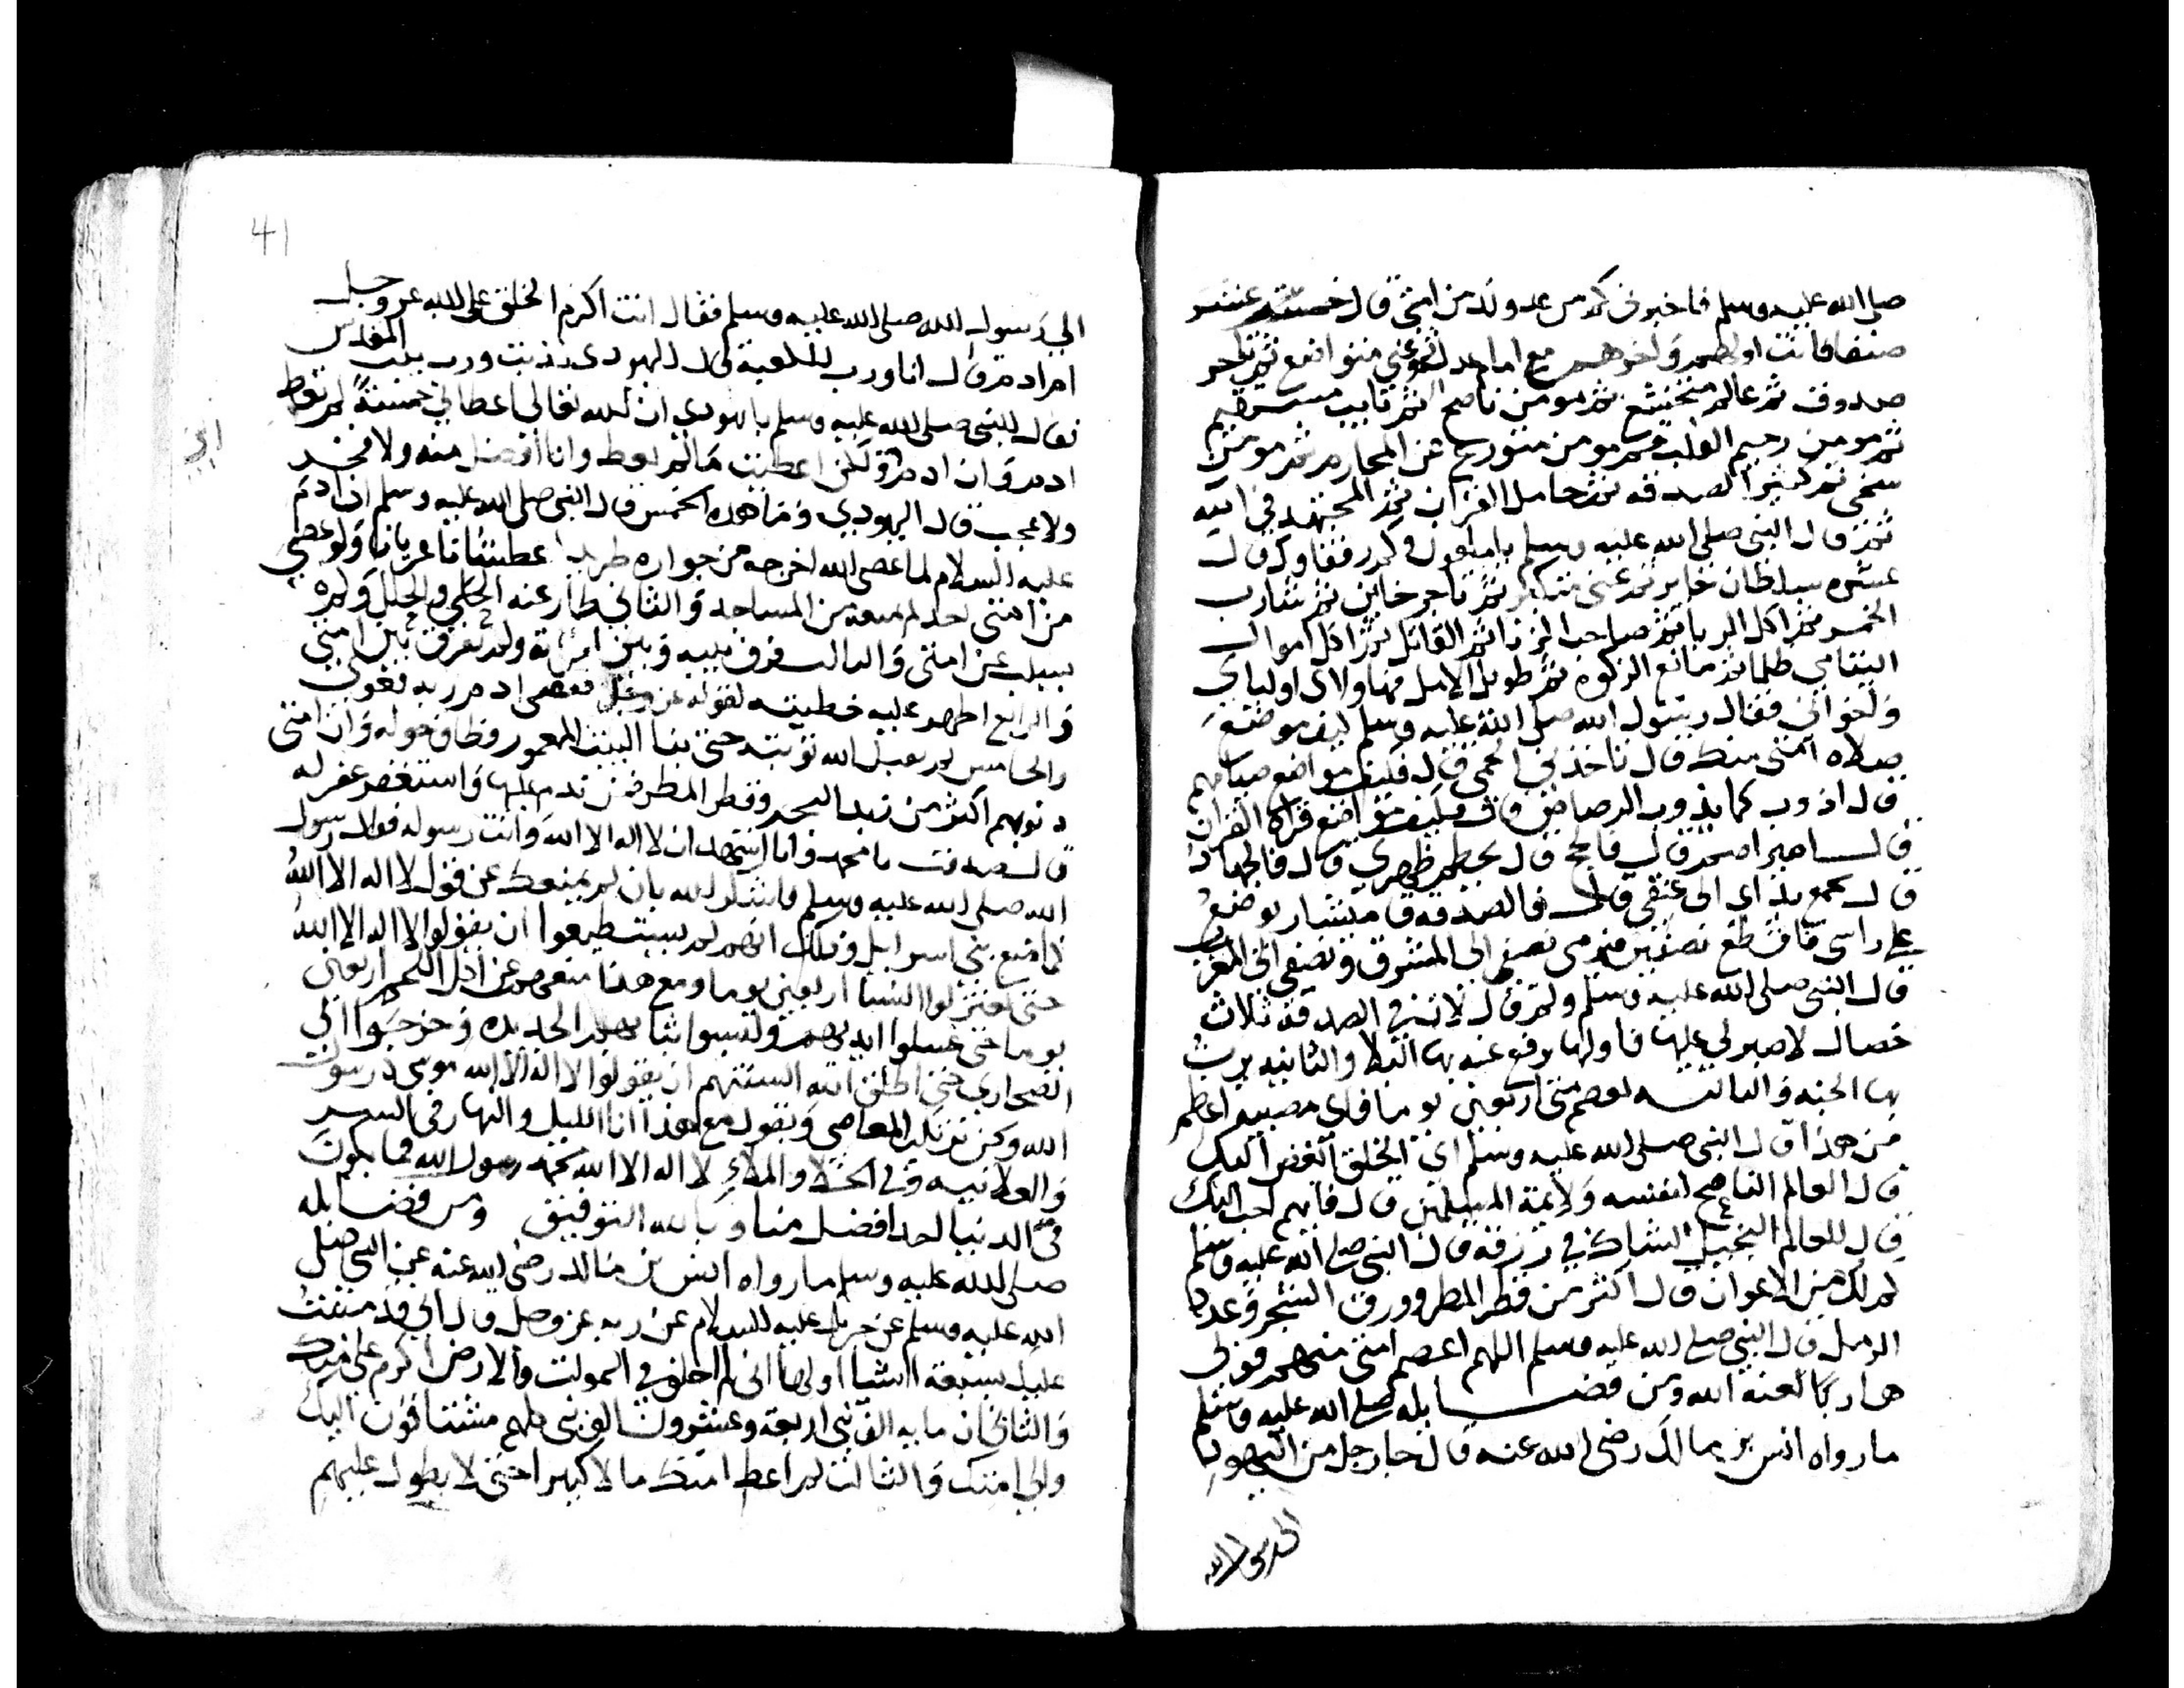 صلى الله عليه وسلم فاخبرني كم من عدو لك من امتي قال خمسة عشر
صنفا فانت اولهم واخرهم مع امام عدل ثم غني متواضع ثم تاجر
صدوق ثم عالم متخشع ثم مومن ناصح ثم تايب مستقيم
ثم مومن رحيم القلب ثم مومن متورع عن المحارم ثم مومن
سخي ثم كثير الصدقه ثم حامل القران ثم المجتهد في الله
ثم قال النبي صلى الله عليه وسلم يا ملعون وكم رفقاوك قال
عشره سلطان جاير ثم غني متكبر ثم تاجر خاين ثم شارب
الخمر ثم اكل الربا ثم صاحب الزنا ثم القاتل ثم اكل اموال
اليتامي ظلما ثم مانع الزكوة ثم طويل الامل فهاولاي اوليااي
واخواني فقال رسول الله صلى الله عليه وسلم كيف موضع
صلاه امتي منك قال تاخذني الحمى قال فكيف مواضع صيامهم
قال اذوب كما يذوب الرصاص قال فكيف مواضع قراة القران
قال اصير اصم قال فالحج قال يحطم ظهري قال فالجهاد
قال يجمع يداي الى عنقي قال فالصدقه قال منشار يوضع
على راسي فاقطع نصفين فيرمى نصفي الى المشرق ونصفي الى المغرب
قال النبي صلى الله عليه وسلم ولم قال لان في الصدقة ثلاث
خصال لا صبر لي عليها فاولها يرفع عنه بها البلا والثانيه يرث
بها الجنه والثالثه يعصم مني اربعين يوما فاي مصيبه اعظم
من هذا قال النبي صلى الله عليه وسلم اي الخلق ابغض اليك
قال العالم الناصح لنفسه ولايمة المسلمين قال فايهم احب اليك
قال العالم البخيل الشاك في رزقه قال النبي صلى الله عليه وسلم
كم لك من الاعوان قال اكثر من قطر المطر وورق الشجر وعدد
الرمل قال النبي صلى الله عليه وسلم اللهم اعصم امتي منهم فولى
هاربا لعنه الله ومن فضايله صلى الله عليه وسلم
ما رواه انس بن مالك رضي الله عنه قال جا رجل من اليهود
الى رسول الله
41
الى رسول الله صلى الله عليه وسلم فقال انت اكرم الخلق على الله عز وجل
ام ادم قال انا ورب الكعبة قال اليهودي كذبت ورب بيت المقدس
فقال النبي صلى الله عليه وسلم يا يهودي ان الله تعالى اعطاني خمسة لم تعط
ادم وان ادم اعطيت ما لم يعط وانا افضل منه ولا فخر
ولا عجب قال اليهودي وما هذه الخمس قال النبي صلى الله عليه وسلم ان ادم
عليه السلام لما عصى الله اخرجه من جواره عريانا ولو عصى
من امتي احد لم يمنعه من المساجد والثاني طار عنه الحلي والحلل ولم
يسلب عن امتي والثالث فرق بينه وبين امراته ولم تفرق بين امتي
والرابع اظهر عليه خطيته لقوله عز وجل فعصى ادم ربه فغوى
والخامس لم يقبل الله توبته حتى بنا البيت المعمور وطاف حوله وان امتي
ذنوبهم اكثر من زبد البحر وقطر المطر فمن ندم عليها واستغفر غفر له
قال صدقت يا محمد وانا اشهد ان لا اله الا الله وانت رسوله فقال رسول
الله صلى الله عليه وسلم فاشكر الله بان لم يمنعك عن قول لا اله الا الله
كما منع بني اسرايل وذلك انهم لم يستطيعوا ان يقولوا لا اله الا الله
حتى يعتزلوا النسا اربعين يوما ومع هذا منعهم عن اكل اللحم اربعين
يوما حتى غسلوا ايديهم ولبسوا ثيابهم الجديده وخرجوا الى
الصحاري حتى اطلق الله السنتهم ان يقولوا لا اله الا الله موسى رسول
الله ونحن نرتكب المعاصي ونقول مع هذا انا الليل والنهار في السر
والعلانيه وفي الخلا والملاء لا اله الا الله محمد رسول الله فما يكون
في الدنيا احد افضل منا وبالله التوفيق ومن فضايله
صلى الله عليه وسلم ما رواه انس بن مالك رضي الله عنه عن النبي صلى
الله عليه وسلم عن جبريل عليه السلام عن ربه عز وجل قال اني قد مننت
عليك بسبعة اشيا اولها اني لم اخلق في السموات والارض اكرم علي منك
والثاني ان مايه الف نبي اربعة وعشرون الف نبي كلهم مشتاقون اليك
والى امتك والثالث لم اعط امتك مالا كبيرا حتى لا يطول عليهم